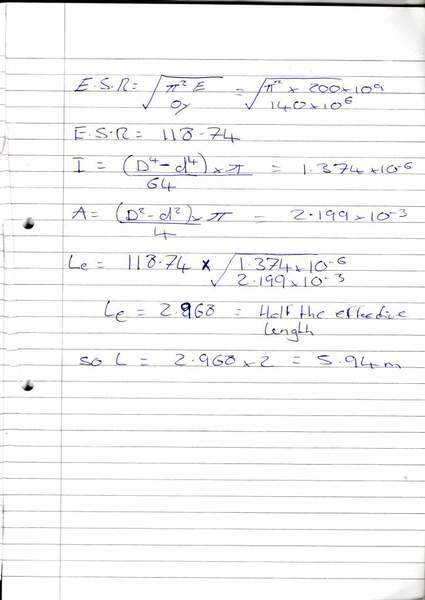 E.S.R = √(π² E / σy) = √(π² × 200×10⁹ / 140×10⁶)
E.S.R = 118.74
I = (D⁴-d⁴)×π / 64 = 1.374×10⁻⁶
A = (D²-d²)×π / 4 = 2.199×10⁻³
Le = 118.74 × √(1.374×10⁻⁶ / 2.199×10⁻³)
Le = 2.968 = Half the effective
length
so L = 2.968×2 = 5.94m